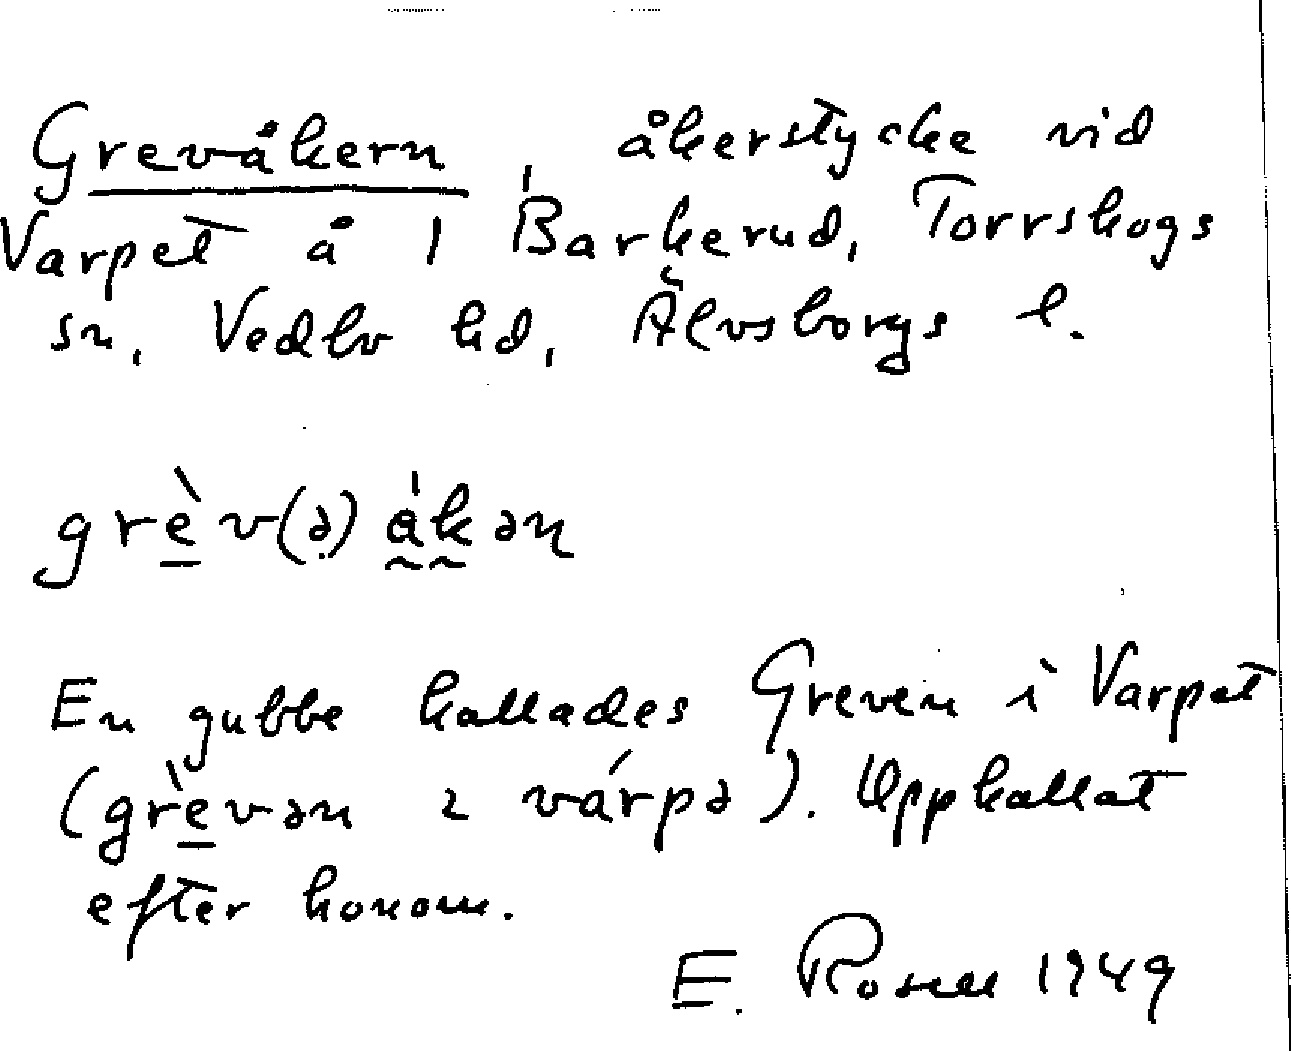 Grevåkern, åkerstycke vid
Varpet å 1 Barkerud, Torrskogs
sn, Vedbo hd, Älvsborgs l.
grèv(ə)åkən
En gubbe kallades Greven i Varpet
(grèvən ɩ várpə). Uppkallat
efter honom.
E. Rosell 1949